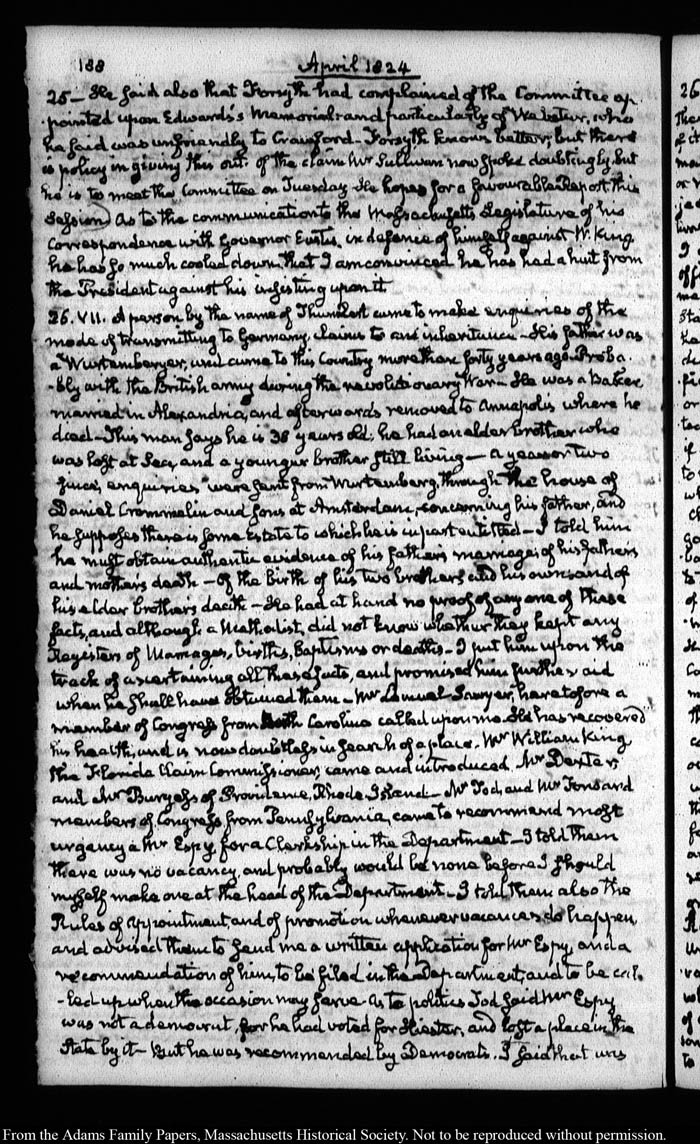 188
April 1824
25 — He said also that Forsyth had complained of the Committee ap-
pointed upon Edwards's Memorial and particularly of Webster, who
he said was unfriendly to Crawford — Forsyth knows better; but there
is policy in giving this out. Of the claim Mr Sullivan now spoke doubtingly, but
he is to meet the Committee on Tuesday. He hopes for a favourable Report this
Session. As to the communication to the Massachusetts Legislature of his
Correspondence with Governor Eustis, in defence of himself against W. King
he has so much cooled down that I am convinced he has had a hint from
the President against his insisting upon it
26. VII. A person by the name of came to make enquiries of the
mode of transmitting to Germany, claims to an inheritance — His father was
a Wurtemberger, and came to this Country more than forty years ago. Proba-
-bly with the British army during the revolutionary War — He was a Baker
married in Alexandria, and afterwards removed to Annapolis where he
died — This man says he is 38 years old; he had an elder brother who
was lost at Sea, and a younger brother still living — a year or two
since, enquiries were sent from Wurtemberg, through the house of
Daniel Crommelin and Sons at Amsterdam, concerning his father, and
he supposes there is some Estate to which he is in part entitled — I told him
he must obtain authentic evidence of his father's marriage; of his father's
and mother's death — Of the birth of his two brothers and his own, and of
his elder brother's death — He had at hand no proof of any one of these
facts, and although a Methodist, did not know whether they kept any
Registers of Marriages, births, Baptisms or deaths — I put him upon the
track of ascertaining all these facts, and promised him further aid
when he shall have obtained them — Mr Lemuel Sawyer, heretofore a
member of Congress from North Carolina called upon me. He has recovered
his health, and is now doubtless in search of a place. Mr William King
the Florida Claim Commissioner, came and introduced Mr Dexter
and Mr Burgess of Providence, Rhode Island — Mr Tod, and Mr
members of Congress from Pennsylvania, came to recommend most
urgency a Mr Espy, for a Clerkship in the Department — I told them
there was no vacancy, and probably would be none before I should
myself make one at the head of the Department — I told them also the
Rules of appointment, and of promotion whenever vacancies do happen,
and advised them to send me a written application for Mr Espy, and a
recommendation of him, to be filed in the Department, and to be cal-
-led up when the occasion may serve. As to politics Tod said Mr Espy
was not a democrat, for he had voted for Hiester, and lost a place in the
State by it — But he was recommended by Democrats. I said that was
From the Adams Family Papers, Massachusetts Historical Society. Not to be reproduced without permission.